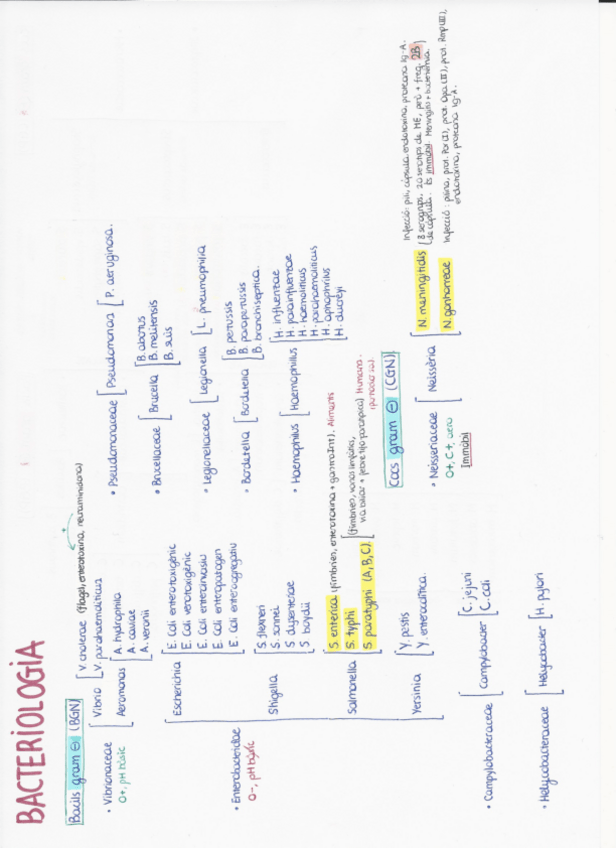 BACTERIOLOGIA
Bacils gram ⊖ (BGN)
• Vibrionaceae
O+, pH bàsic
Vibrio
V. cholerae (flagel, enterotoxina, neuraminidasa)
V. parahaemolíticus
Aeromonas
A. hydrophila
A. caviae
A. veronii
• Enterobacteridae
O-, pH bàsic
Escherichia
E. Coli enterotoxigènic
E. Coli verotoxigènic
E. Coli enteroinvasiu
E. Coli enteropatogen
E. Coli enteroagregatiu
Shigella
S. flexneri
S. sonnei
S. dysenteriae
S. boydii
Salmonella
S. enterica (fimbries, enterotoxina + gastroInt). Aliments
S. typhi
S. paratyphi (A, B, C).
(fimbries, vacuol
via biliar + febre tifo-paratípica) Humans.
Yersinia
Y. pestis
Y. enterocolítica.
• Campylobacteraceae
Campylobacter
C. jejuni
C. coli
• Helycobacteraceae
Helycobacter
H. pylori
• Pseudomonaceae
Pseudomonas
P. aeruginosa.
• Brucellaceae
Brucella
B. abortus
B. melitensis
B. suis
• Legionellaceae
Legionella
L. pneumophilia
• Bordetella
Bordetella
B. pertussis
B. parapertussis
B. bronchiseptica.
• Haemophilus
Haemophilus
H. influenzae
H. parainfluenzae
H. haemolíticus
H. parahaemolíticus
H. aprophilus
H. ducreyi
Cocs gram ⊖ (CGN)
• Neisseriaceae
O+, C+, aero
Immòbil
Neissèria
N. meningitidis
Infecció: pili, càpsula, endotoxina, proteasa Ig-A.
8 serogrups. 20 serotips de ME, però + freq. 2B
de càpsula. És immòbil. Meningitis + bacterièmia.
N. gonhorreae
Infecció: pilina, prot. Por (I), prot. Opa (II), prot. Rmp (III),
endotoxina, proteasa Ig-A.